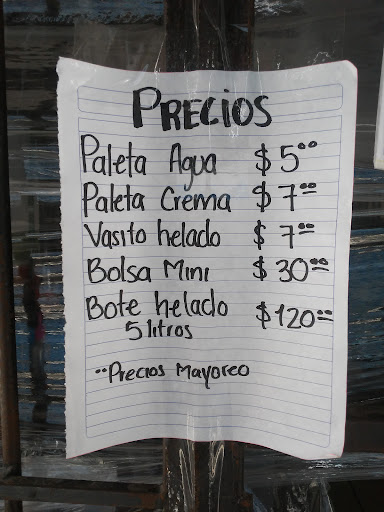 PRECIOS
Paleta Agua $ 5°°
Paleta Crema $ 7°°
Vasito helado $ 7°°
Bolsa Mini $ 30°°
Bote helado $120°°
5 litros
°°Precios Mayoreo